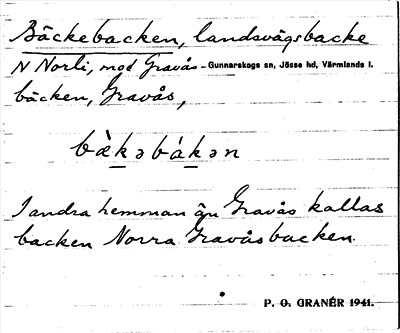 Bäckebacken, landsvägsbacke
N Norli, mod Gravås - Gunnarskogs sn, Jösse hd, Värmlands l.
bäcken, Gravås,
bæ̀kəbákən
I andra hemman än Gravås kallas
backen Norra Gravåsbacken.
P. O. GRANÉR 1941.